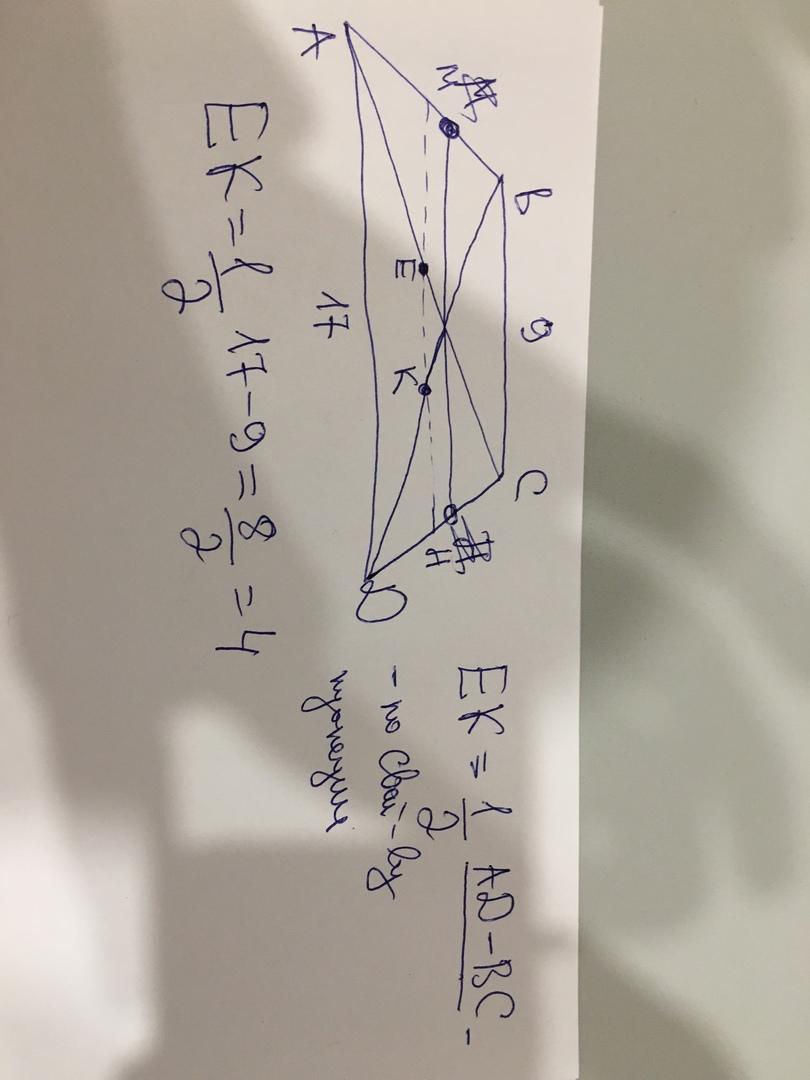 B 9 C
M H
E K
A 17 D
EK = 1/2 AD - BC -
- по свой-ву
трапеции
EK = 1/2 17 - 9 = 8/2 = 4